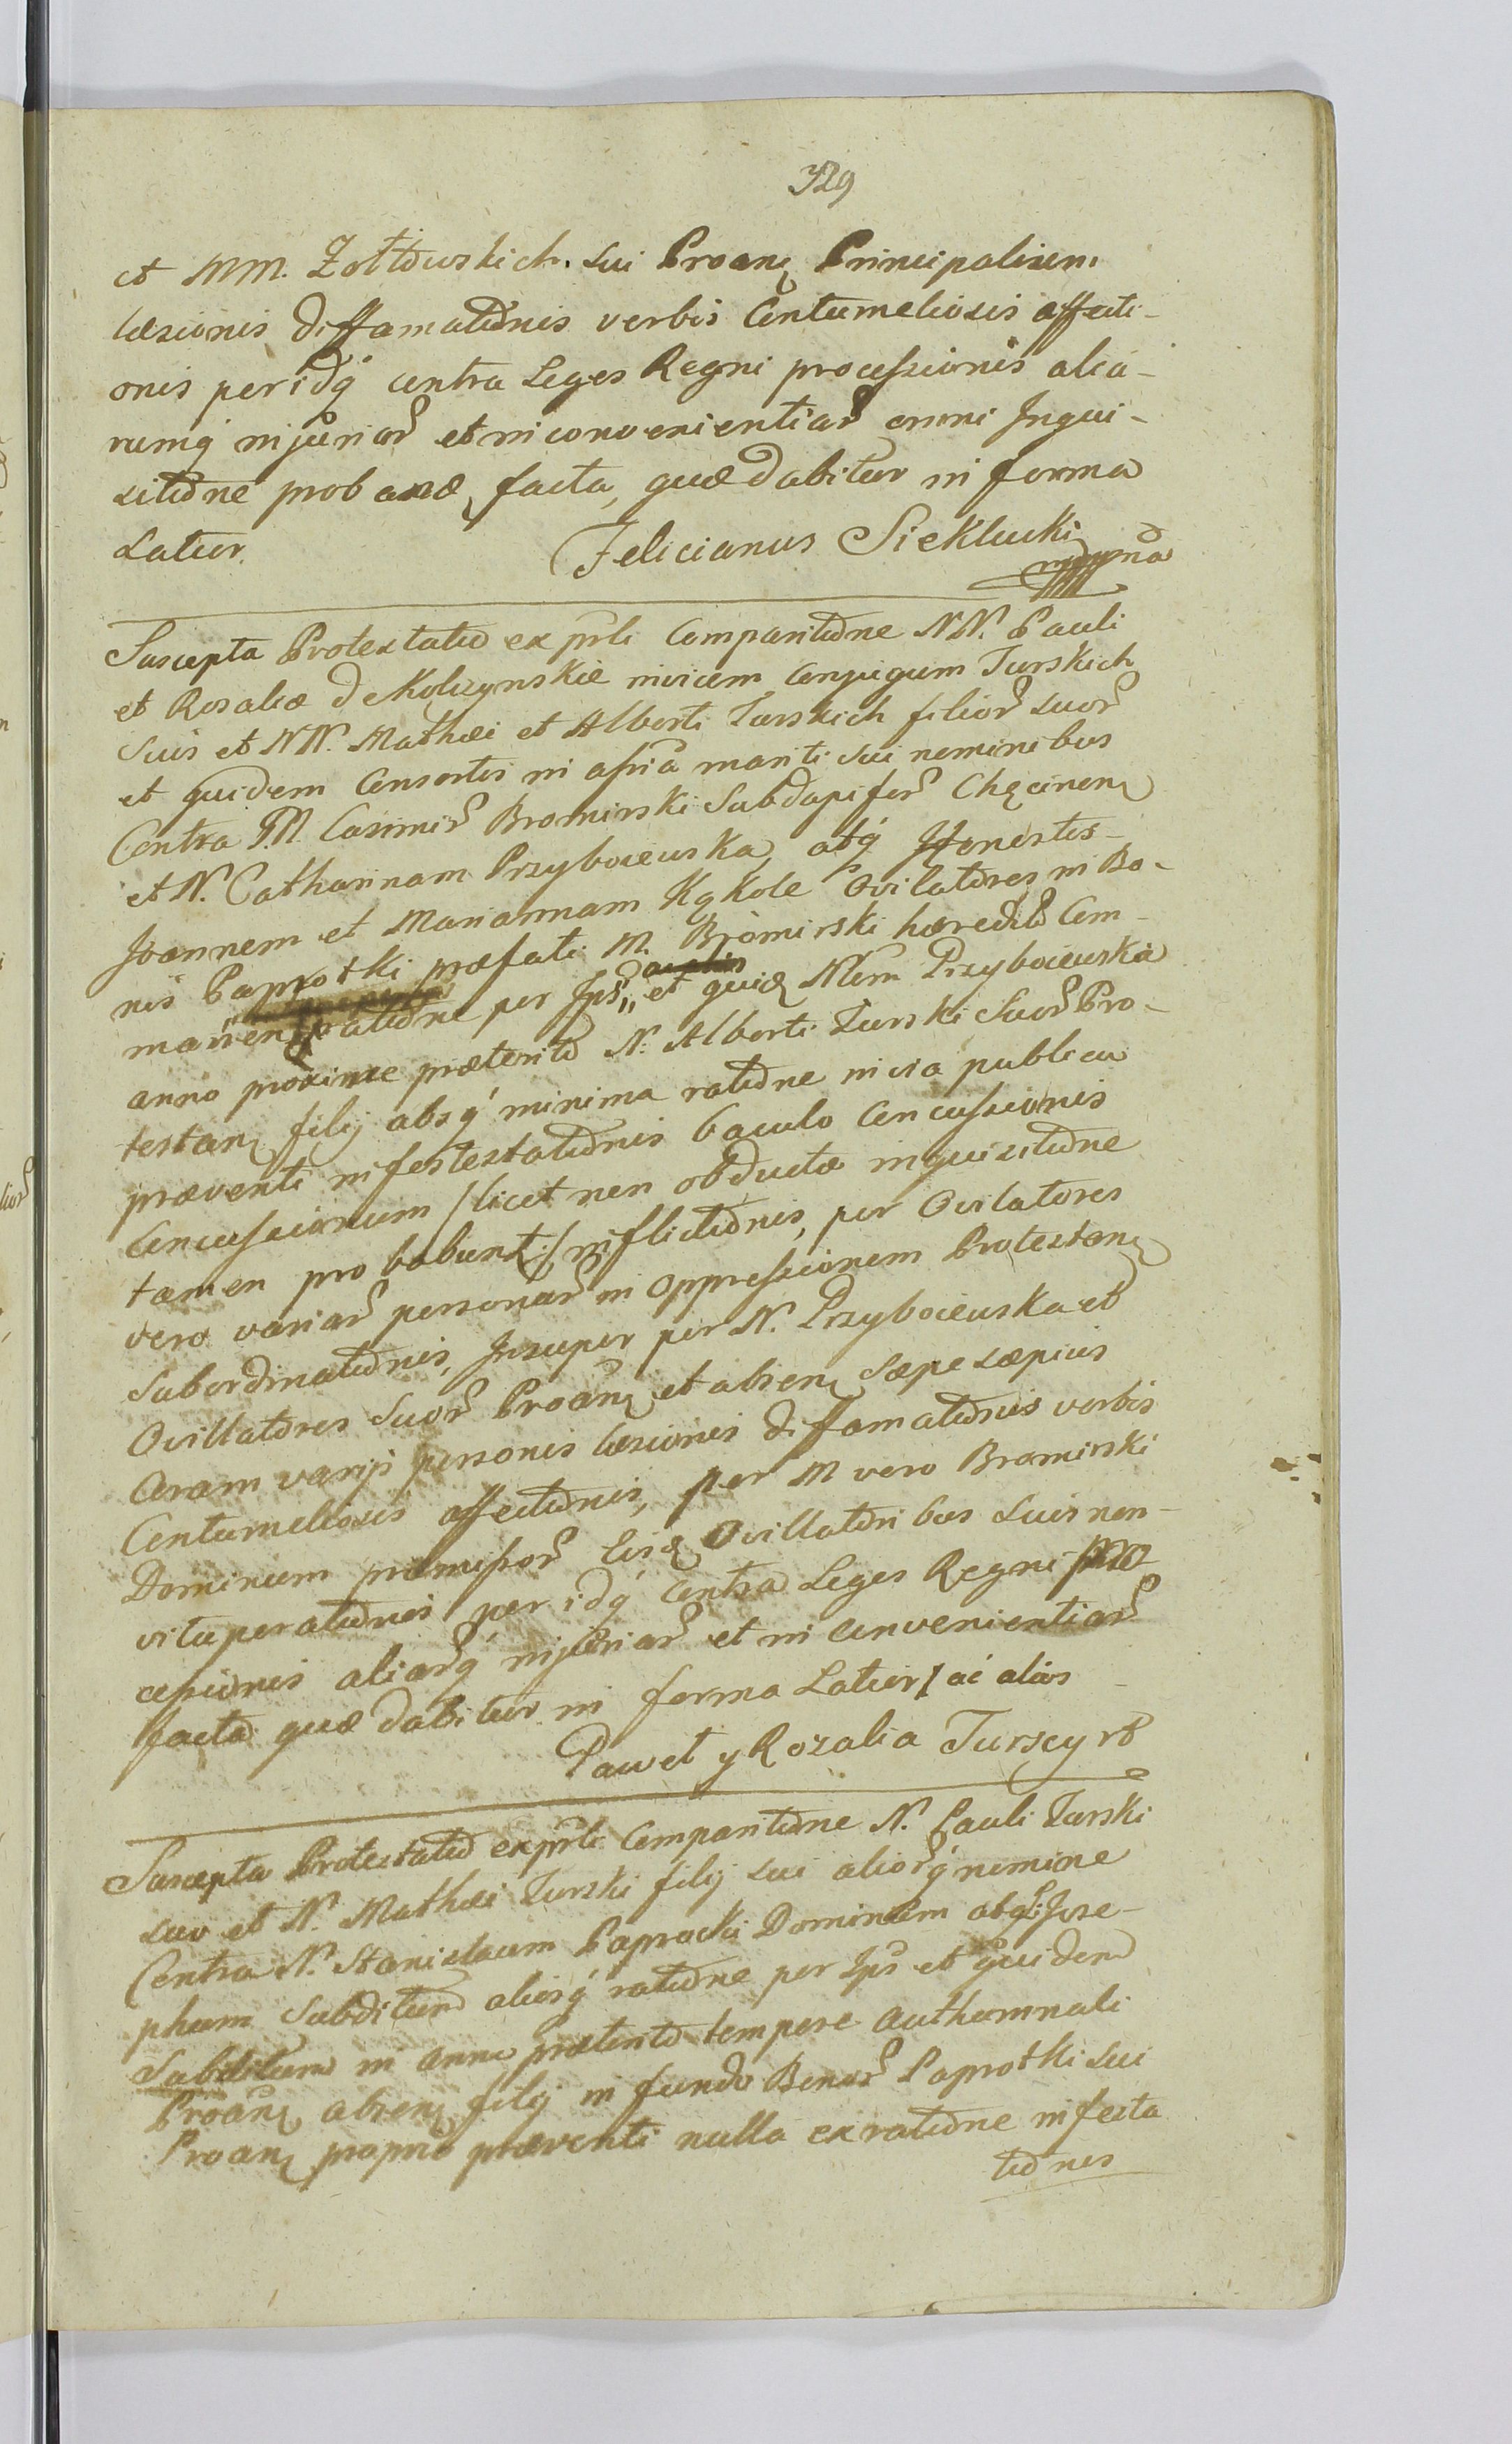 329
et MM. Zołtowskich. sui Proanʒ Principalium
læsionis diffamationis verbis Contumeliosis affecti-
onis per idq́ contra Leges Regni processionis alia-
rumq́ injuriar̃ et inconvenientiar̃ omni Inqui-
sitione probandæ facta, quæ dabitur in forma
Latior.
Felicianus Sieklucki
mppria
Suscepta Protestatio ex prli Comparitione NN. Pauli
et Rosaliæ de Kolczynskie invicem Conjugum Turskich
Suis et NN. Mathæi et Alberti Turskich filior̃ suor̃
et quidem Consortis in assia mariti sui nominibus
Contra M. Casimir̃ Bromirski Subdapifer̃ Chęcinenʒ
et N. Catharinam Przybociewska, atq́ Honestos
Joannem et Mariannam Kąkole Ovilatores in Bo-
nis Paprotki præfati M. Bromirski hæredito Com-
manenʒ ratione per Ips et quidʒ Nlem Przybociewska
anno proxime præterito N. Alberti Turski Suor̃ Pro-
testanʒ filij absq́ minima ratione in via publica
præventi infestestationis baculo Concussionis
Concussionum /licet non obducta inquisitione
tamen probabunt:/ inflictionis, per Ovilatores
vero variar̃ personar̃ in oppressionem Protestanʒ
Subordinationis, Insuper per N. Przybociewska et
Ovillatores Suor̃ Proanʒ et absenʒ sæpe sæpius
Coram varijs personis læsionis diffamationis verbis
Contumeliosis affectionis, per M vero Bromirski
Dominum præmissor̃ eisdʒ Ovillatoribus Suis non
vituperationis per idq́ contra Leges Regni pro
cessionis aliarq́ injuriar̃ et inconvenientiar̃
facta quæ dabitur in forma Latior/ ac alias
Paweł y Rozalia Turscy rb
Suscepta Protestatio ex prli Comparitione N. Pauli Turski
suo et N. Mathæi Turski filij sui alior̃q́ nomine
Contra N. Stanislaum Paprocki Dominum atq́ L. Jose-
phum Subditum aliosq́ ratione per Ips et quidem
Subditum in anno præterito tempore authomnali
Proanʒ absenʒ filij in fundo Bonor̃ Paprotki sui
Proanʒ proprio præventi nulla ex ratione infesta
tionis